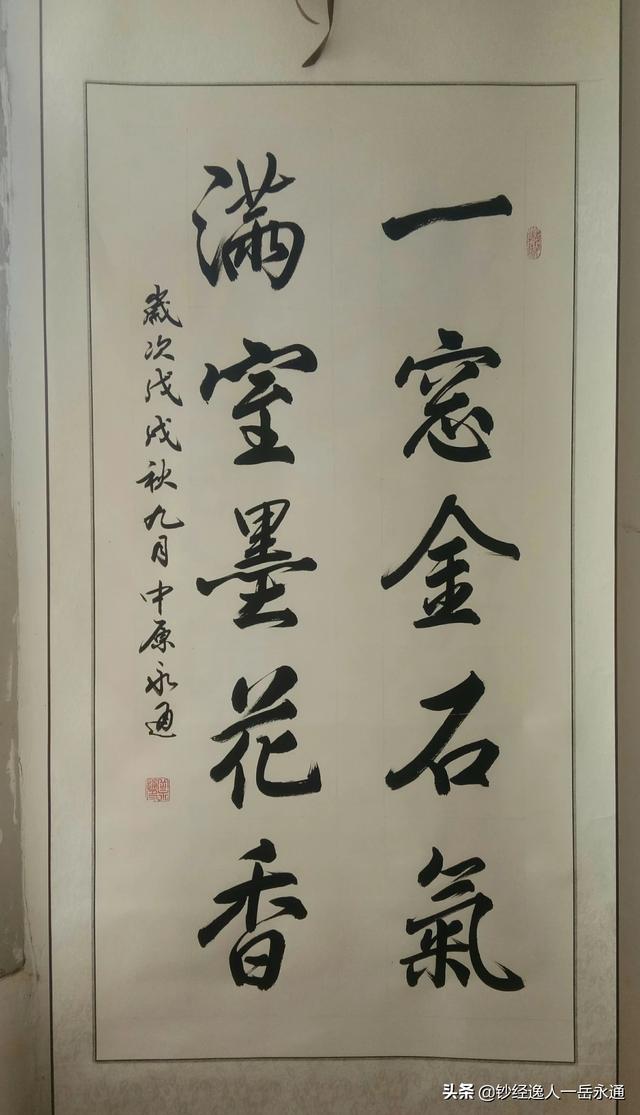 一窓金石氣
满室墨花香
歲次戊戌秋九月中原永通
头条 @钞经逸人一岳永通